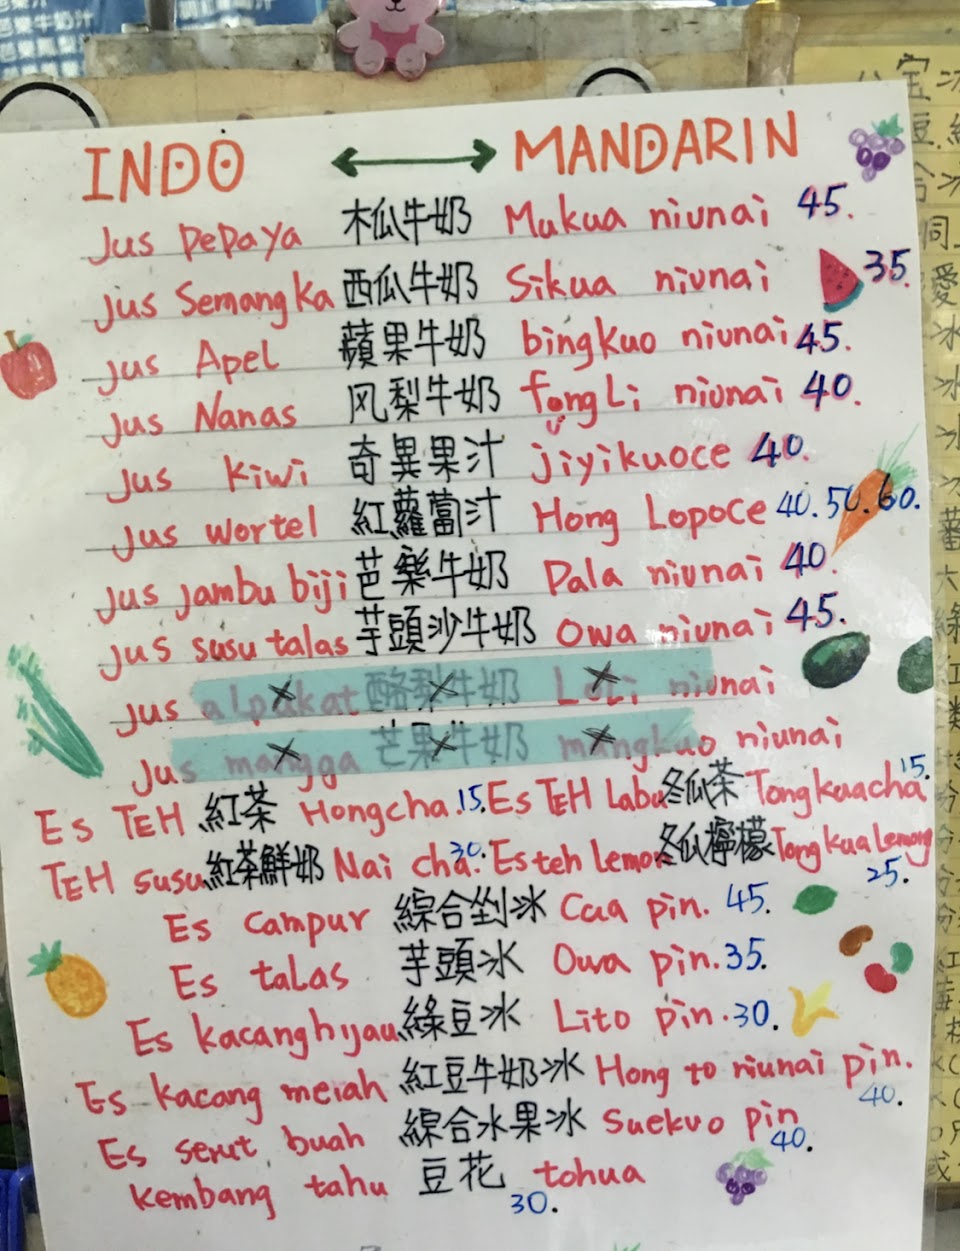 INDO ↔ MANDARIN
Jus pepaya 木瓜牛奶 Mukua niunai 45.
Jus Semangka 西瓜牛奶 Sikua niunai 35.
Jus Apel 蘋果牛奶 bingkuo niunai 45.
Jus Nanas 风梨牛奶 fongLi niunai 40.
Jus kiwi 奇異果汁 jiyikuoce 40.
Jus wortel 紅蘿蔔汁 Hong Lopoce 40.50.60.
Jus jambu biji 芭樂牛奶 Pala niunai 40.
Jus susu talas 芋頭沙牛奶 Owa niunai 45.
Jus alpukat 酪梨牛奶 LoLi niunai
Jus mangga 芒果牛奶 mangkuo niunai
Es TEH 紅茶 Hongcha. 15. Es TEH Labu 冬瓜茶 Tongkuacha 15.
TEH susu 紅茶鮮奶 Nai cha. 30. Es teh Lemon 冬瓜檸檬 Tongkua Lemong 25.
Es campur 綜合剉冰 Caa pin. 45.
Es taLas 芋頭冰 Owa pin. 35.
Es kacang hyau 綠豆冰 Lito pin. 30.
Es kacang merah 紅豆牛奶冰 Hong to niunai pin. 40.
Es serut buah 綜合水果冰 Suekuo pin 40.
kembang tahu 豆花 tohua 30.